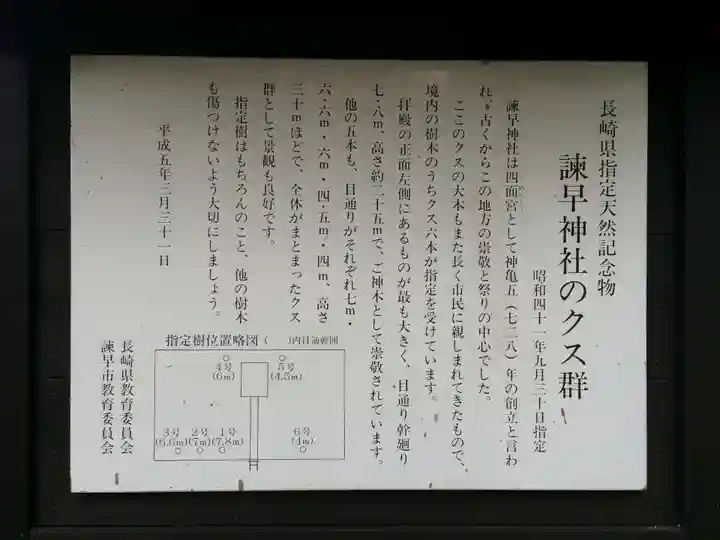 長崎県指定天然記念物
諫早神社のクス群
昭和四十一年九月三十日指定
諫早神社は四面宮として神亀五(七二八)年の創立と言わ
れ、古くからこの地方の崇敬と祭りの中心でした。
ここのクスの大木もまた長く市民に親しまれてきたもので、
境内の樹木のうちクス六本が指定を受けています。
拝殿の正面左側にあるものが最も大きく、目通り幹廻り
七・八m、高さ約二十五mで、ご神木として崇敬されています。
他の五本も、目通りがそれぞれ七m・
六・六m・六m・四・五m・四m、高さ
三十mほどで、全体がまとまったクス
群として景観も良好です。
指定樹はもちろんのこと、他の樹木
も傷つけないよう大切にしましょう。
平成五年三月三十一日
長崎県教育委員会
諫早市教育委員会
指定樹位置略図 ( )内目通幹囲
4号
(6m)
5号
(4.5m)
3号
(6.6m)
2号
(7m)
1号
(7.8m)
6号
(4m)